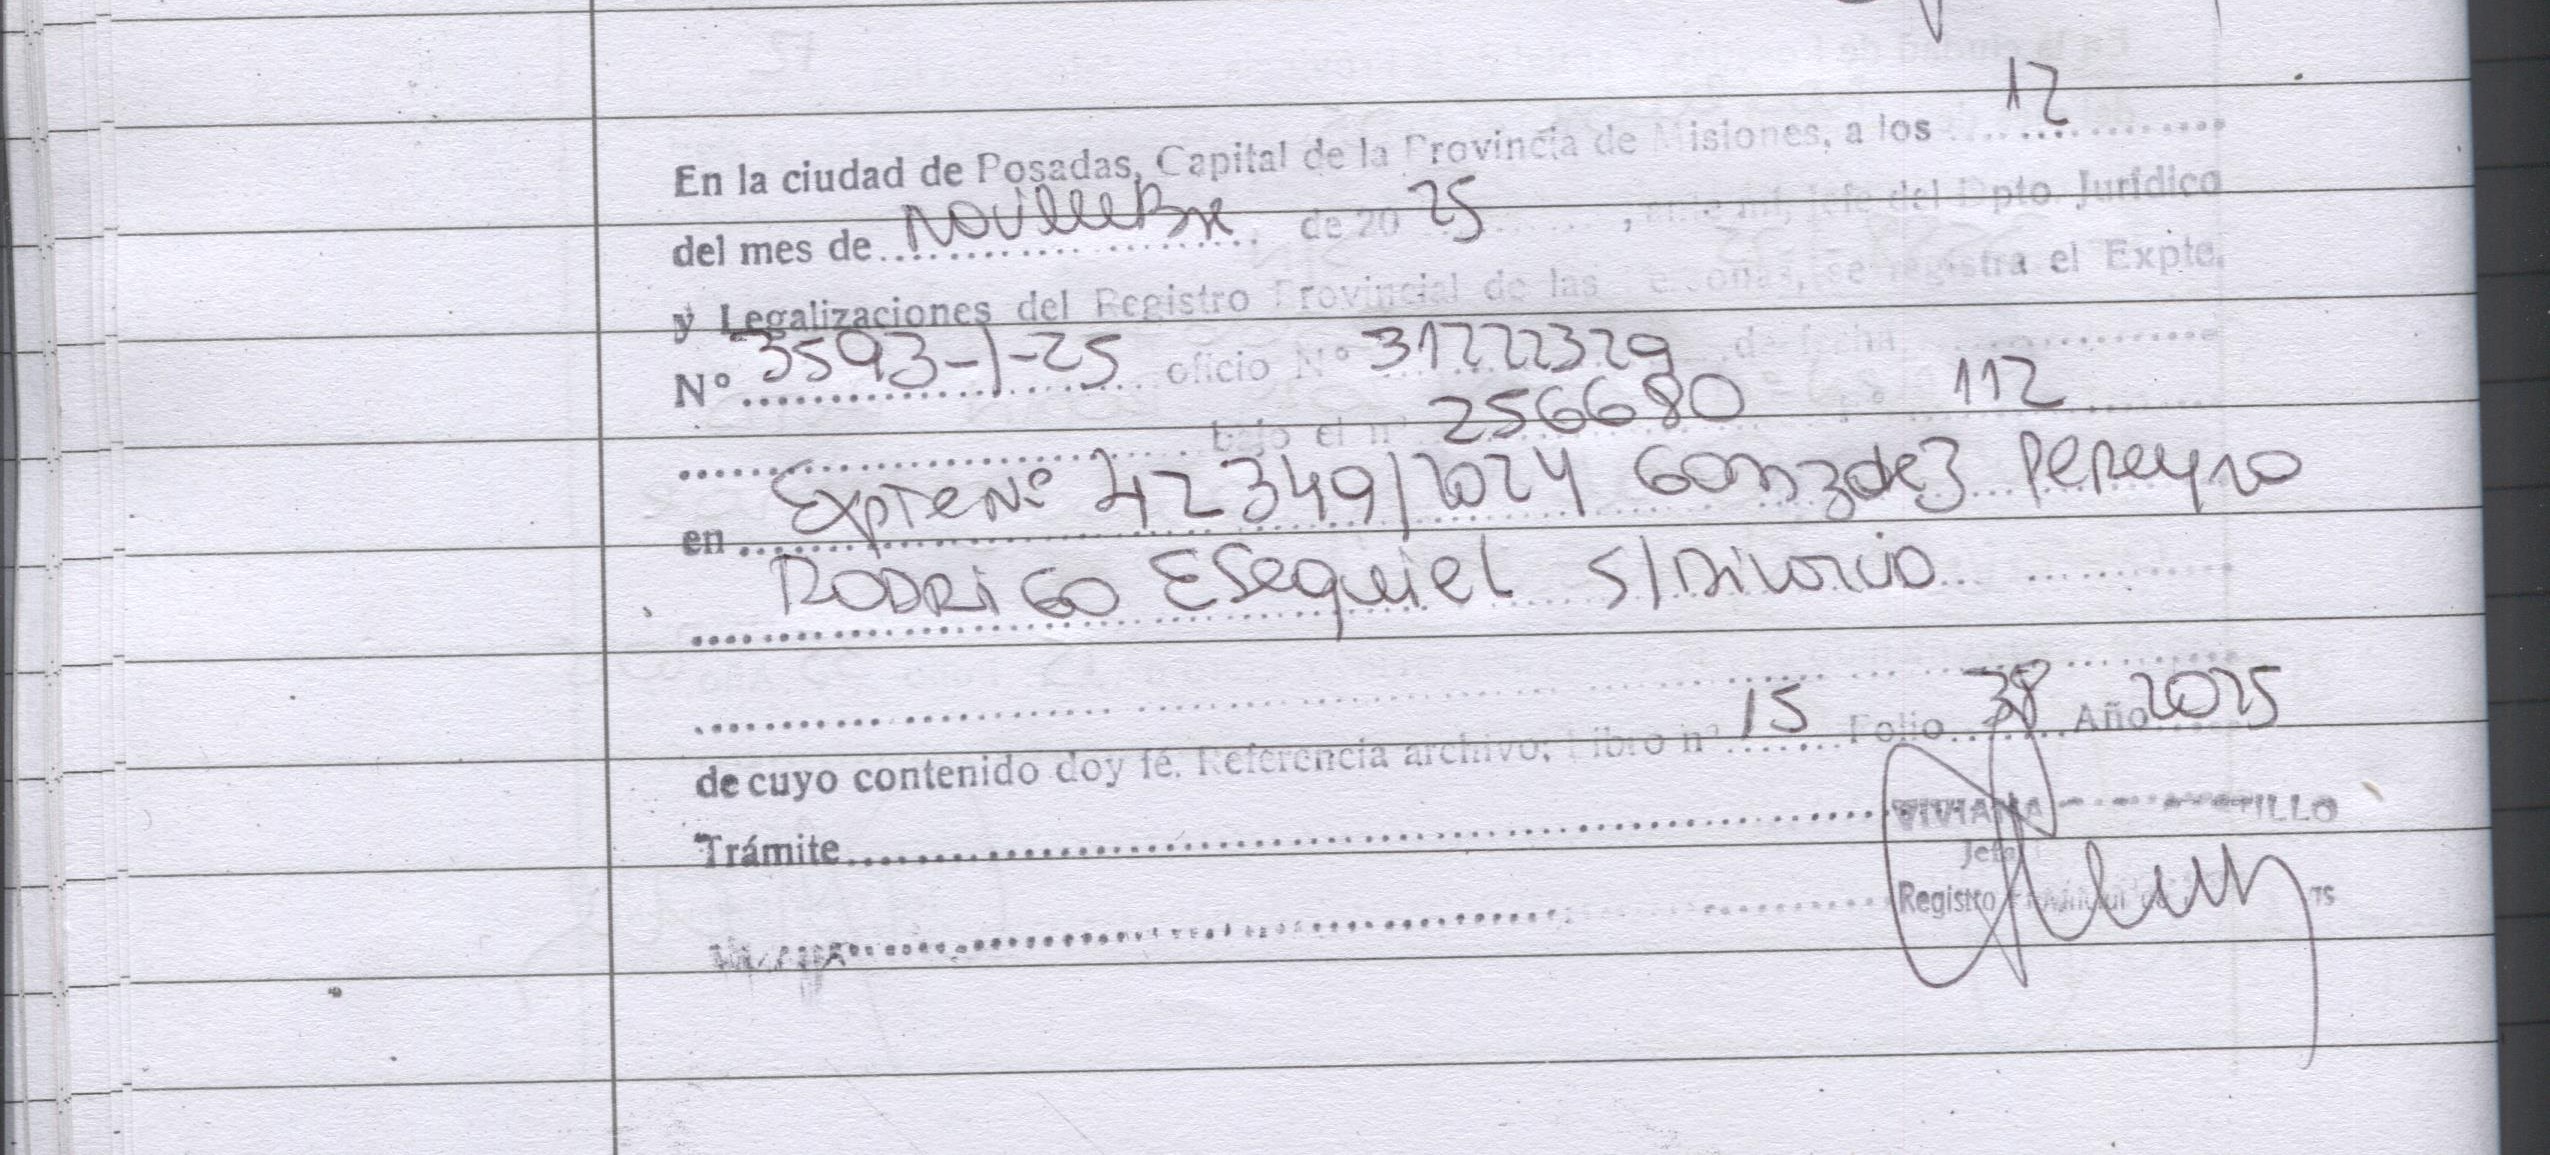 En la ciudad de Posadas, Capital de la Provincia de Misiones, a los 12
del mes de Noviembre de 20 25, ante mi, jefe del Dpto. Jurídico
y Legalizaciones del Registro Provincial de las Personas, se registra el Expte.
Nº 3593-1-25 oficio Nº 31222329 de fecha
bajo el nº 256680 112
en Expte Nº 42349/2024 Gonzalez Pereyra
Rodrigo Esequiel S/Divorcio
de cuyo contenido doy fé. Referencia archivo: Libro nº 15 Folio 38 Año 2025
Trámite
VIVIANA
Jefa
Registro